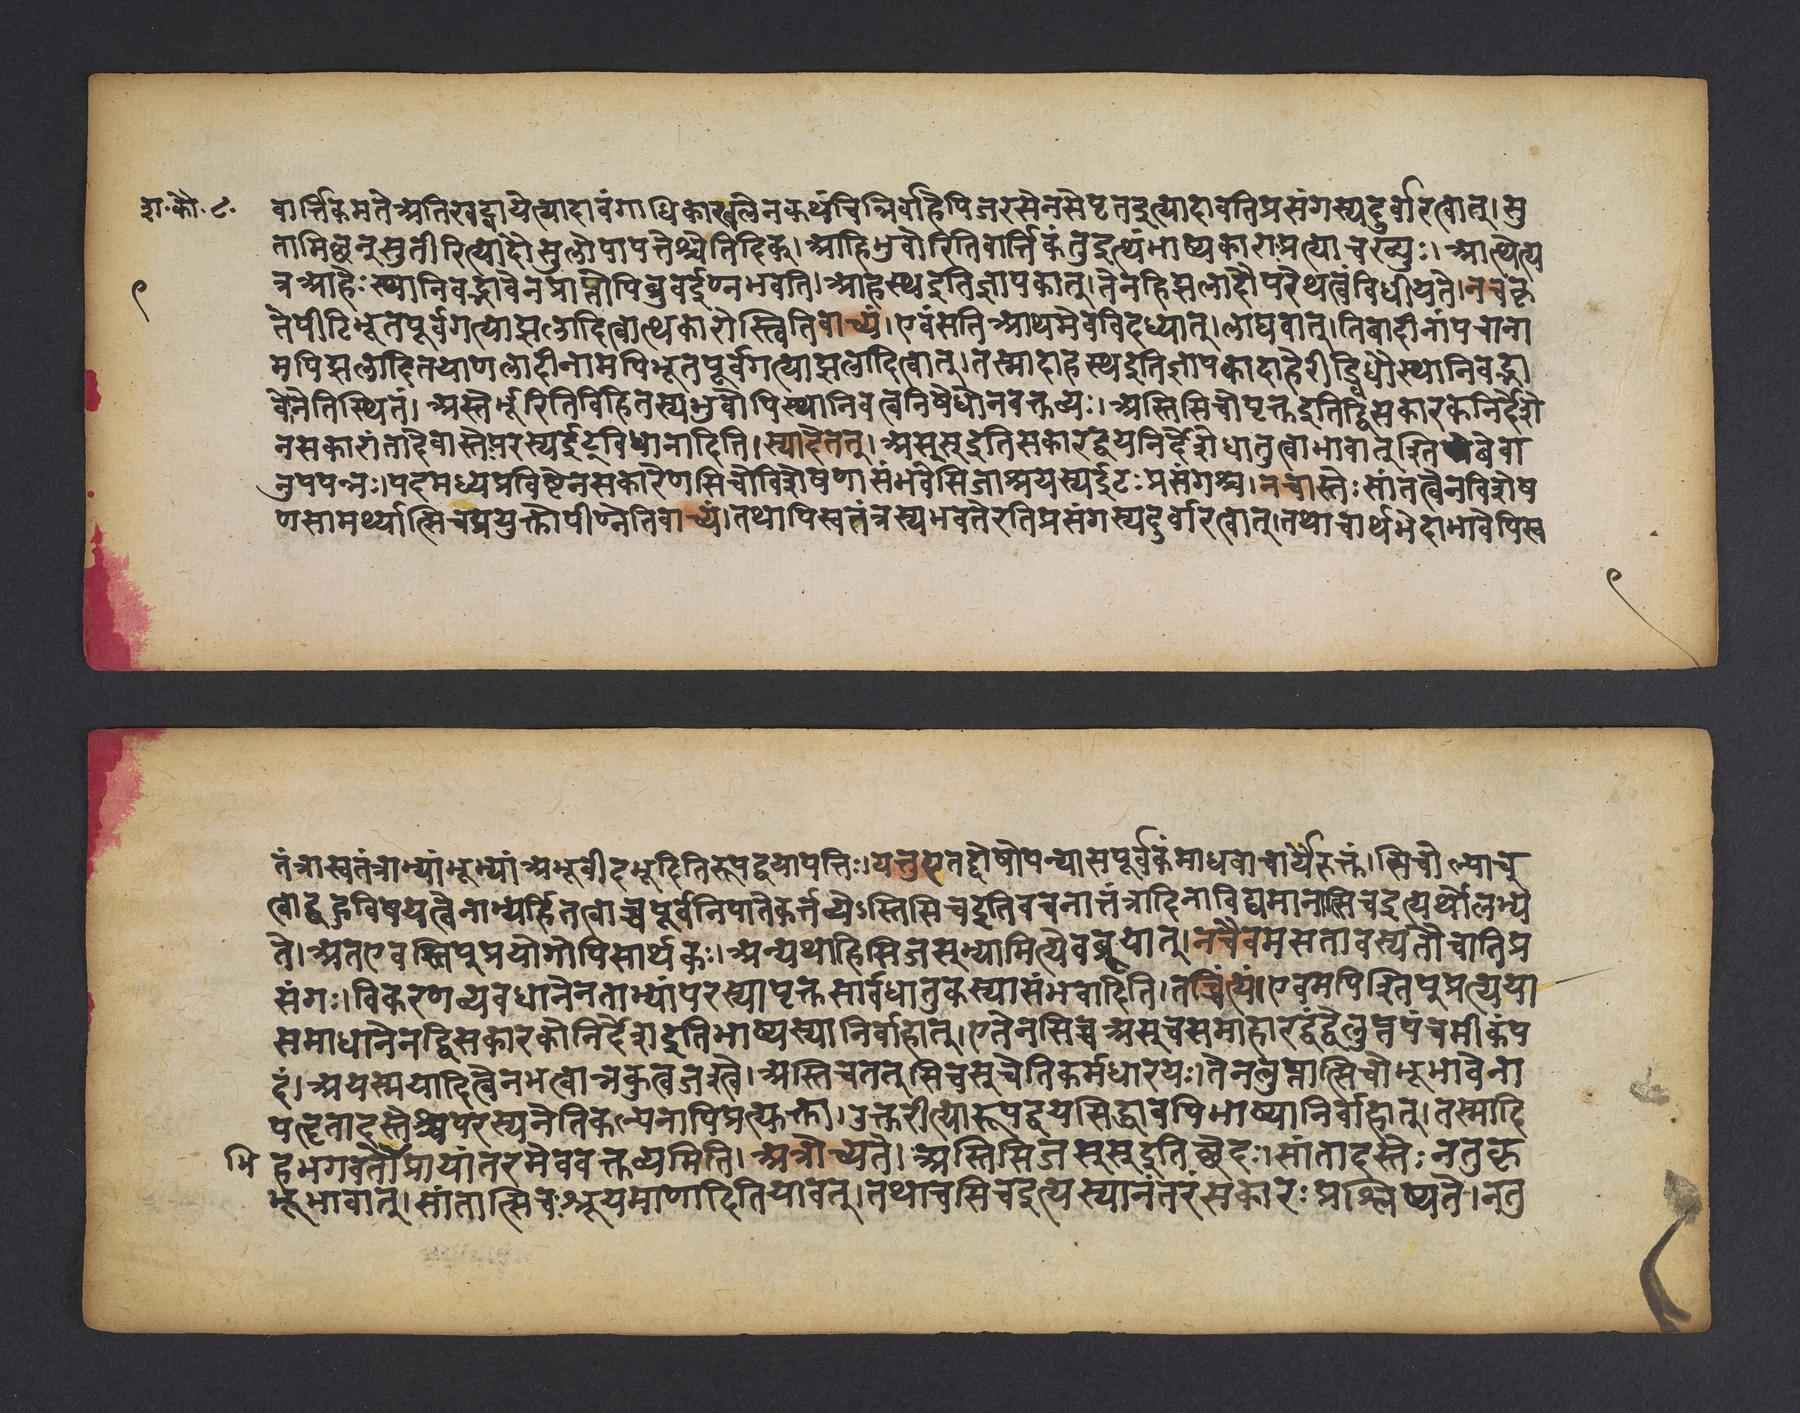 श. कौ. ८. वार्त्तिकमते अतिखट्वायेत्यादावंगाधिकारबलेन कथंचिन्निर्वाहेपि जरसेनसेपृतइत्यादावतिप्रसंगस्य दुर्वारत्वात्। सु
तामिछन् सुतीरित्यादौ सुलोपापत्तेश्चेति दिक्। आहिभुवोरिति वार्त्तिकं तु इत्थं भाष्यकाराः प्रत्याचख्युः। आत्थेत्य
त्र आहेः स्थानिवद्भावेन प्राप्तोपि ब्रुव ईण्न भवति। आहस्थ इति ज्ञापकात्। तेन हि झलादौ परे थत्वं विधीयते। न च कृ
तेपीटि भूतपूर्वगत्या झलादित्वात्थकारोस्त्विति वाच्यं। एवं सति आथमेव विदध्यात्। लाघवात्। तिबादीनां पंचाना
मपि झलादितया णलादीनामपि भूतपूर्वगत्या झलादित्वात्। तस्मादाहस्थ इति ज्ञापकादाहेरीड्विधौ स्थानिवद्भा
वो नेति स्थितं। अस्तेर्भूरिति विहितस्य भुवोपि स्थानिवत्वनिषेधो न वक्तव्यः। अस्तिसिचोपृक्त इति द्विसकारकनिर्देशे
न सकारांतादेवास्तेः परस्य ईड्विधानादिति। स्यादेतत्। अस् स् इति सकारद्वयनिर्देशे धातुत्वाभावात् श्तिबेवा
नुपपन्नः। पदमध्यप्रविष्टेन सकारेण सिचो विशेषणासंभवे सिजाश्रयस्य ईटः प्रसंगश्च। न चास्तेः सांतत्वेन विशेष
णसामर्थ्यात्सिचप्रयुक्तोपीण्नेति वाच्यं। तथापि स्वतंत्रस्य भवतेरतिप्रसंगस्य दुर्वारत्वात्। तथा चार्थभेदाभावेपि स्व
तंत्रास्वतंत्राभ्यां भूभ्यां अभूवीदभूदिति रूपद्वयापत्तिः। यत्तु एतद्दोषोपन्यासपूर्वकं माधवाचार्यैरुक्तं। सिचोल्पाच्
त्वाद्बहुविषयत्वेनाभ्यर्हितत्वाच्च पूर्वनिपाते कर्त्तव्येऽस्तिसिच इति वचनात्तंत्रादिना विद्यमानात्सिच इत्यर्थो लभ्य
ते। अत एव श्तिप्प्रयोगोपि सार्थकः। अन्यथा हि सिजस्भ्यामित्येव ब्रूयात्। न चैवमसतावस्यतौ चातिप्र
संगः। विकरणव्यवधानेन ताभ्यां परस्यापृक्तसार्वधातुकस्यासंभवादिति। तच्चिंत्यं। एवमपि श्तिप्प्रत्यया
समाधानेन द्विसकारको निर्देश इति भाष्यस्यानिर्वाहात्। एतेन सिच्च अस्च समाहारद्वंद्वे लुप्तपंचमीकं प
दं। अयस्मयादित्वेन भत्वान्न कुत्वजश्त्वे। अस्ति च तत् सिचस् चेति कर्मधारयः। तेन लुप्तात्सिचो भूभावेना
पहृतादस्तेश्च परस्य नेति कल्पनापि प्रत्युक्ता। उक्तरीत्या रूपद्वयसिद्धावपि भाष्यानिर्वाहात्। तस्मादि
ह भगवतोभिप्रायांतरमेव वक्तव्यमिति। अत्रोच्यते। अस्तिसिजस् स् इति छेदः। सांतादस्तेः न तु कृ
भि
तभूभावात्। सांतात्सिचः श्रूयमाणादिति यावत्। तथा च सिच इत्यस्यानंतरं सकारः प्रश्लिष्यते। न तु